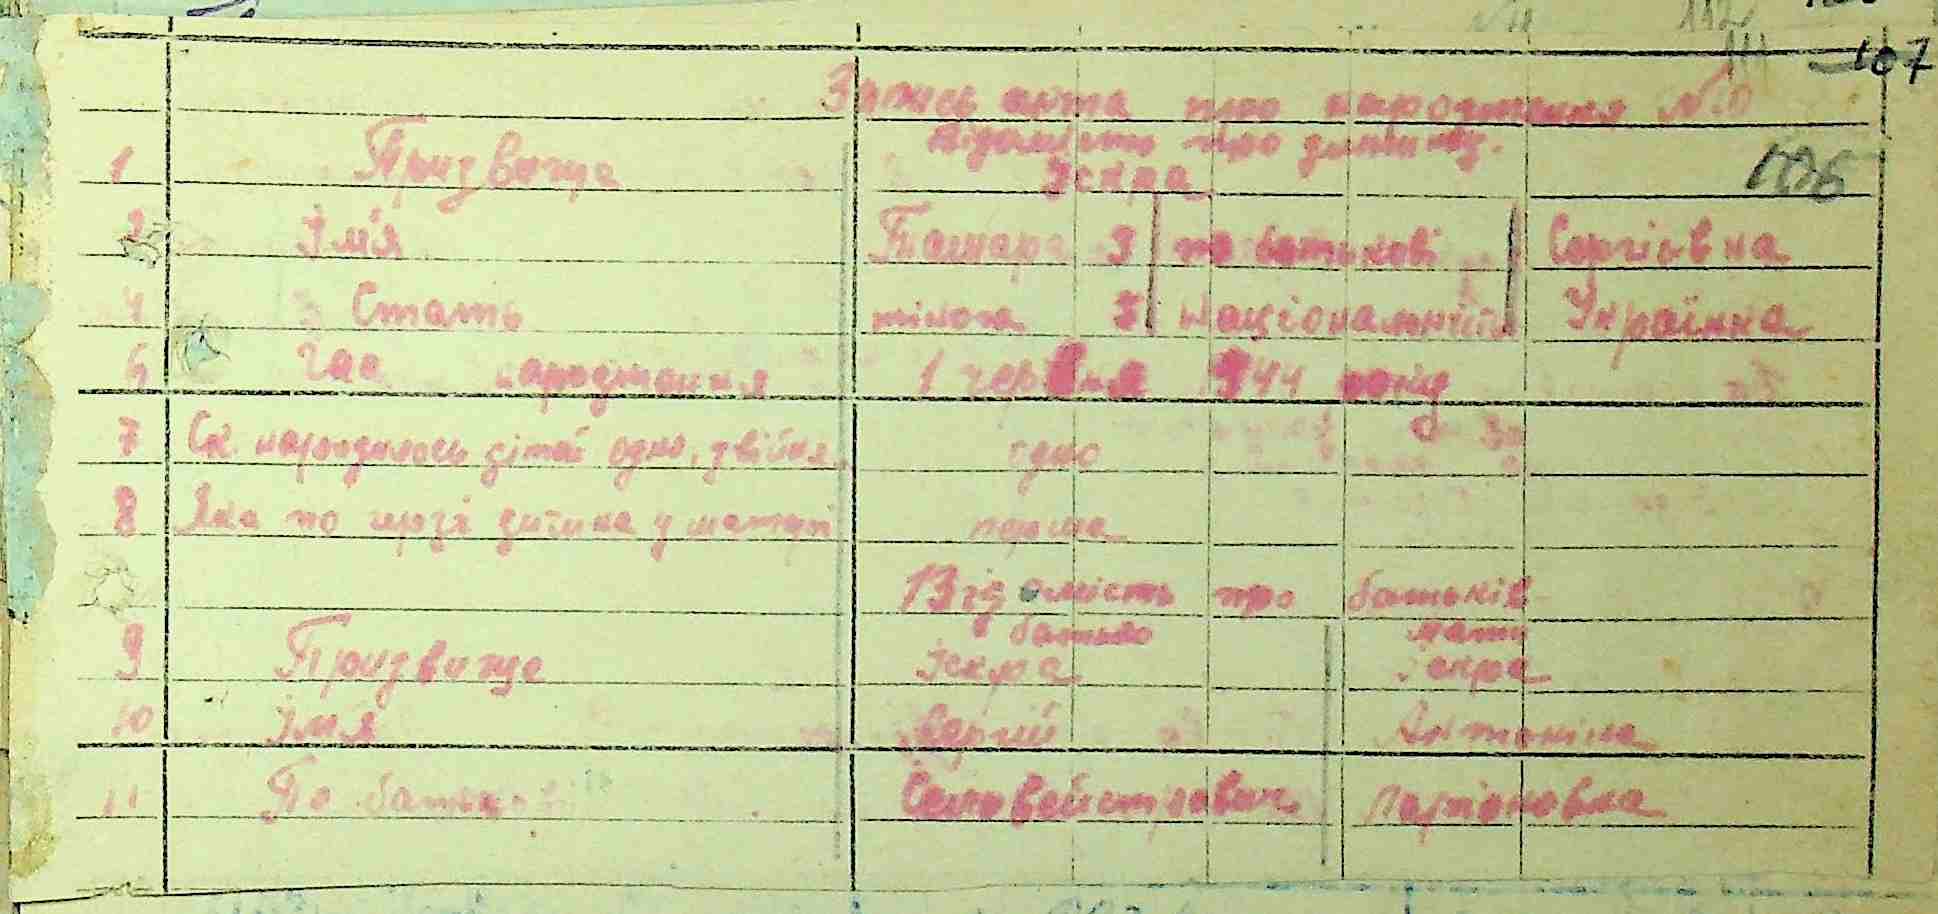 107
Запись акта про народження №
Відомість про дитину.
1 Призвище Іскра
106
2 Імя Тамара 3 по батькові Сергіевна
4 Стать жіноча 5 Національність Українка
6 Час народження 1 червня 1944 року
7 Ск. народилось дітей одно, двійня, одно
8 Яка по черзі дитина у матері перша
Відомість про батьків
батько мати
9 Призвище Іскра Іскра
10 Імя Сергій Антоніна
11 По батькові Селовейстрович Ларіоновна